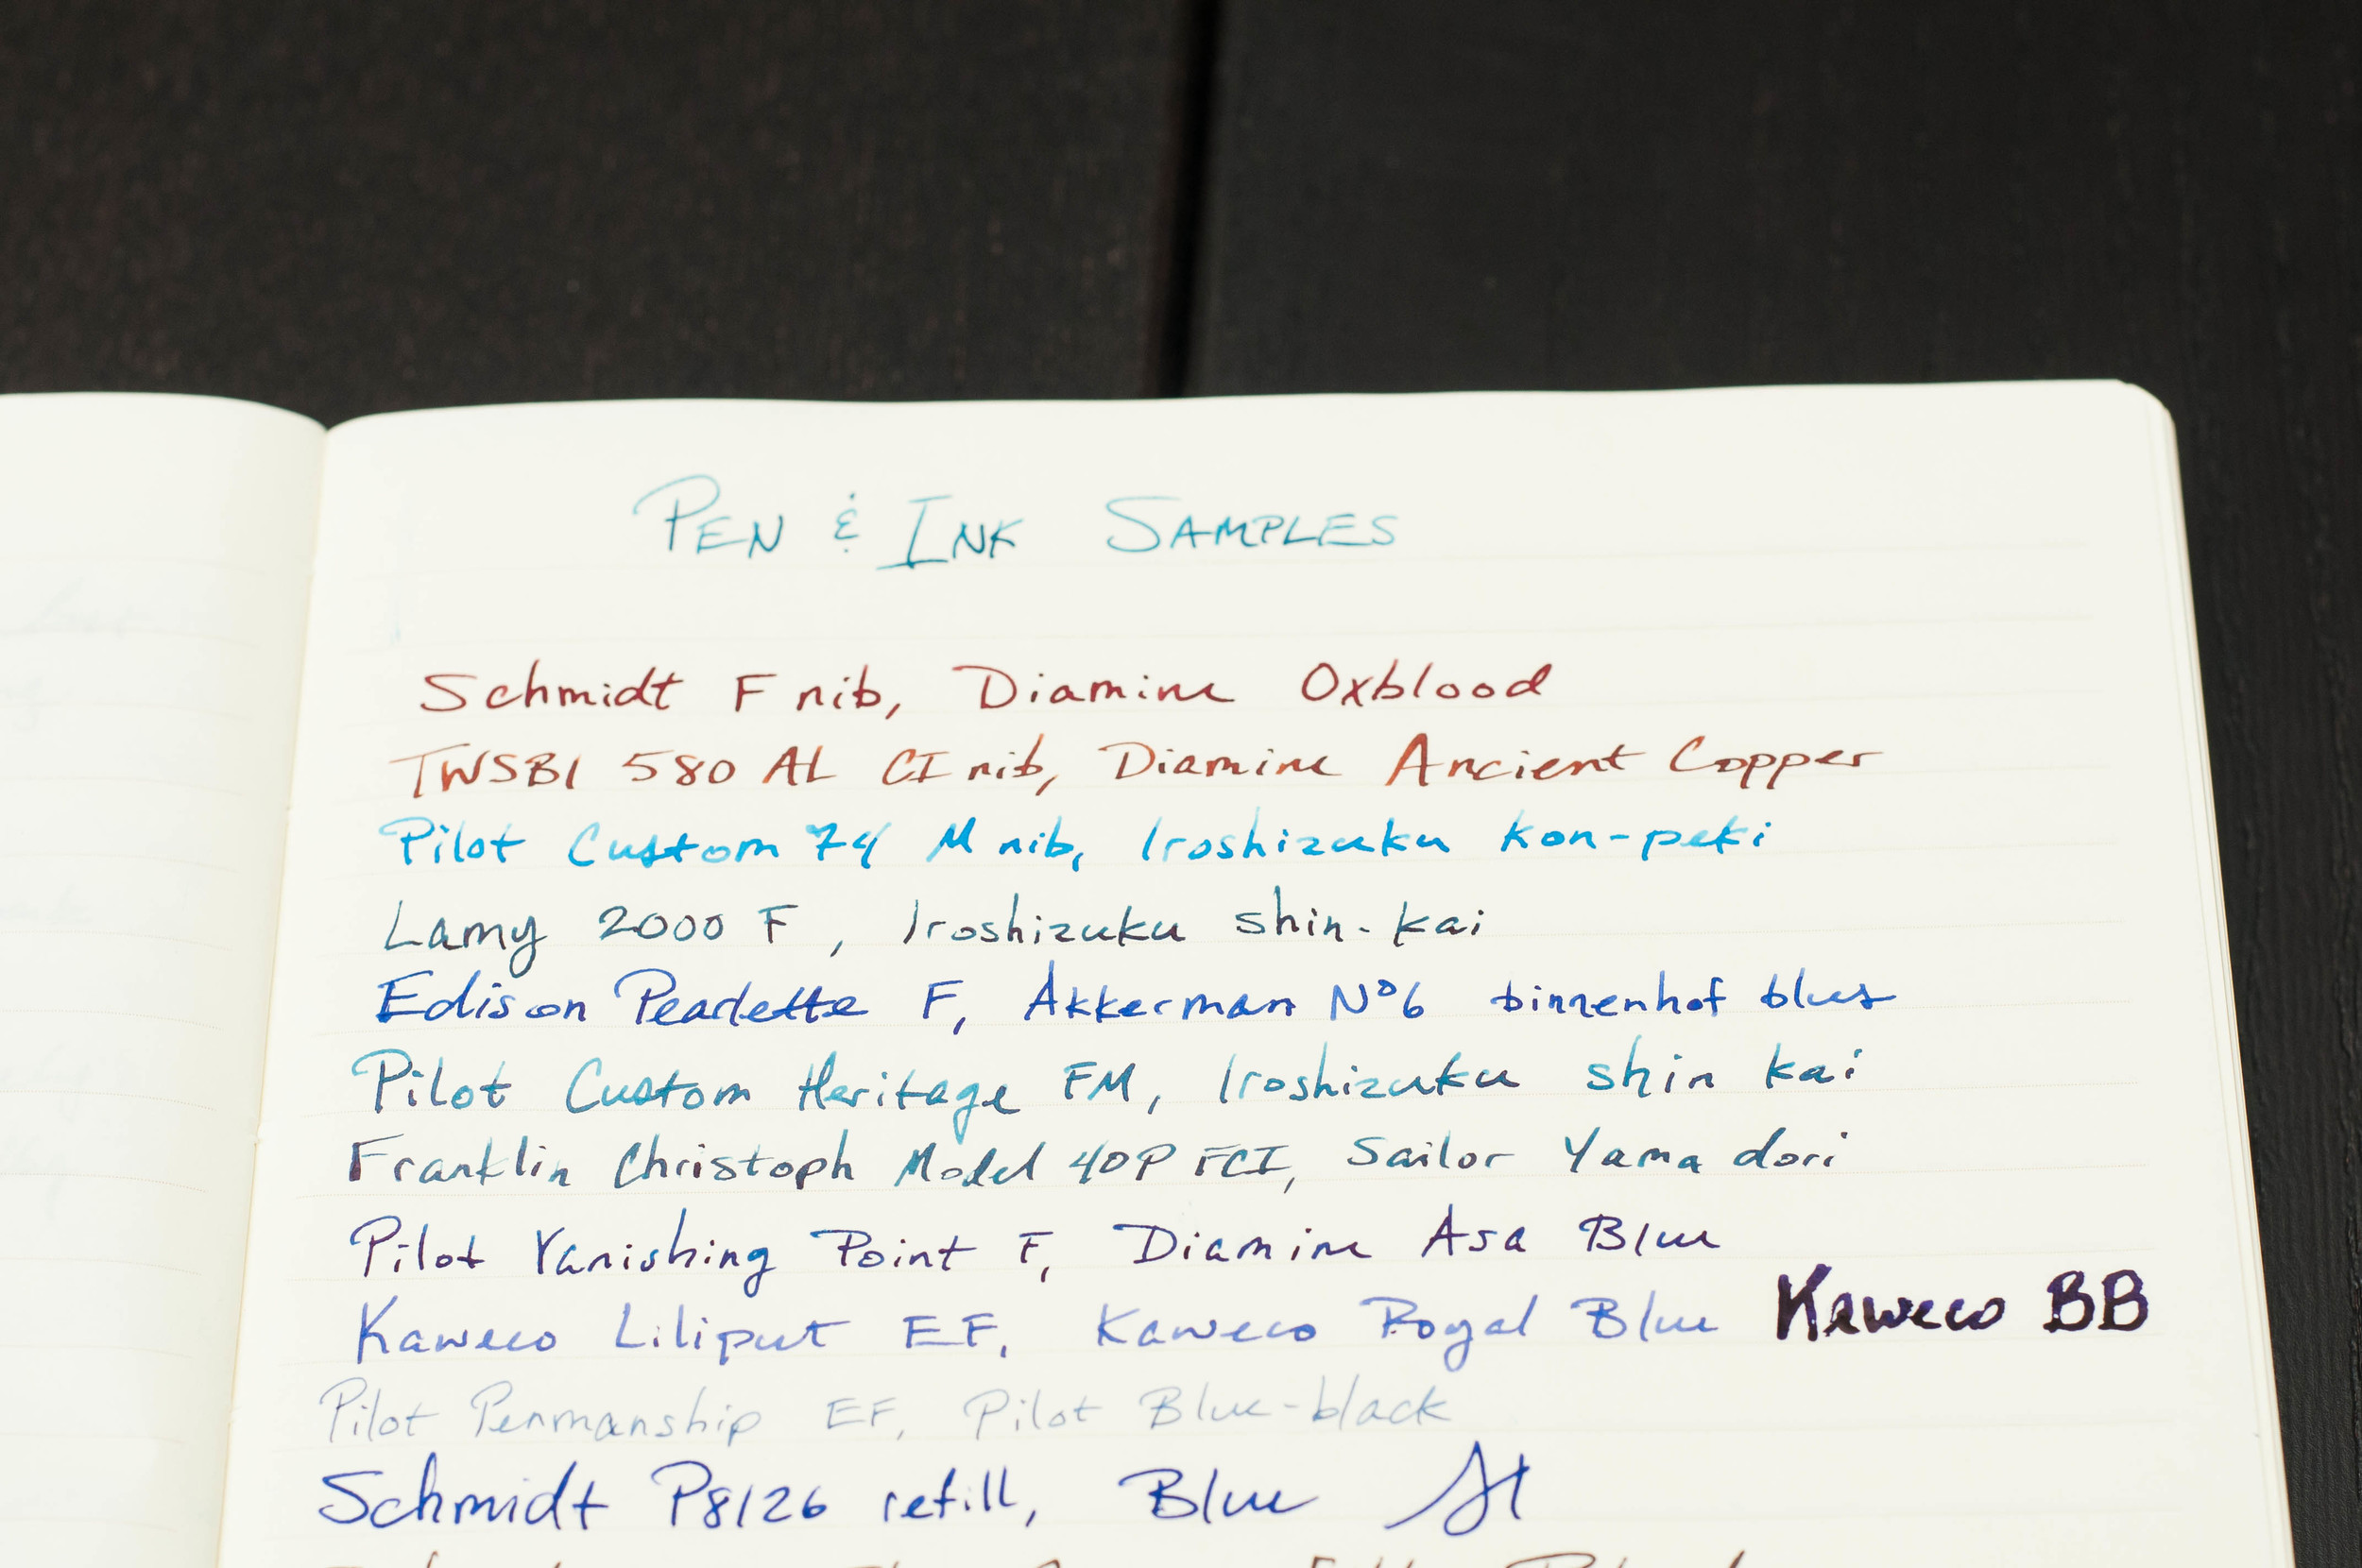 PEN & INK SAMPLES
Schmidt F nib, Diamine Oxblood
TWSBI 580 AL CI nib, Diamine Ancient Copper
Pilot Custom 74 M nib, Iroshizuku kon-peki
Lamy 2000 F, Iroshizuku shin-kai
Edison Pearlette F, Akkerman Nº6 binnenhof blues
Pilot Custom Heritage FM, Iroshizuku shin kai
Franklin Christoph Model 40P FCI, Sailor Yama dori
Pilot Vanishing Point F, Diamine Asa Blue
Kaweco Liliput EF, Kaweco Royal Blue Kaweco BB
Pilot Penmanship EF, Pilot Blue-black
Schmidt P8126 refill, Blue